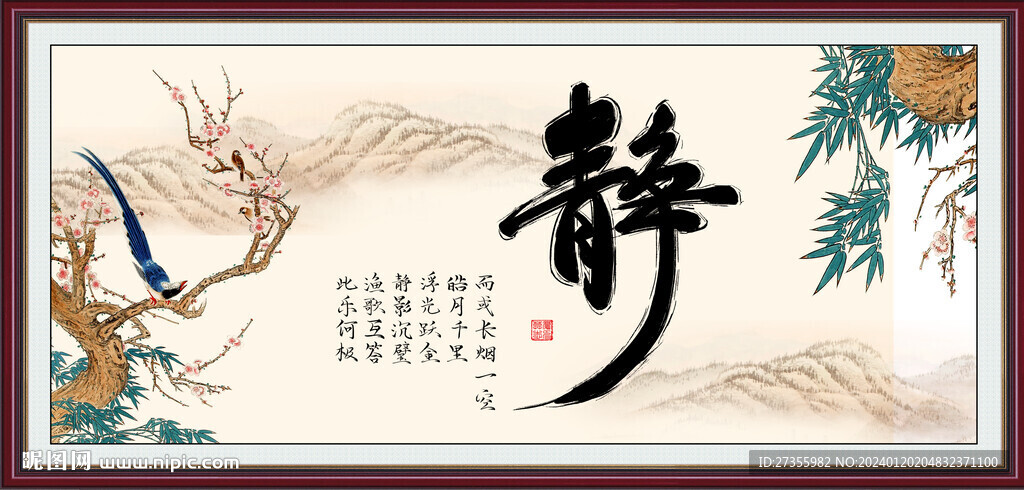 静
而或长烟一空
皓月千里
浮光跃金
静影沉璧
渔歌互答
此乐何极
昵图网 www.nipic.com
ID:27355982 NO:20240120204832371100